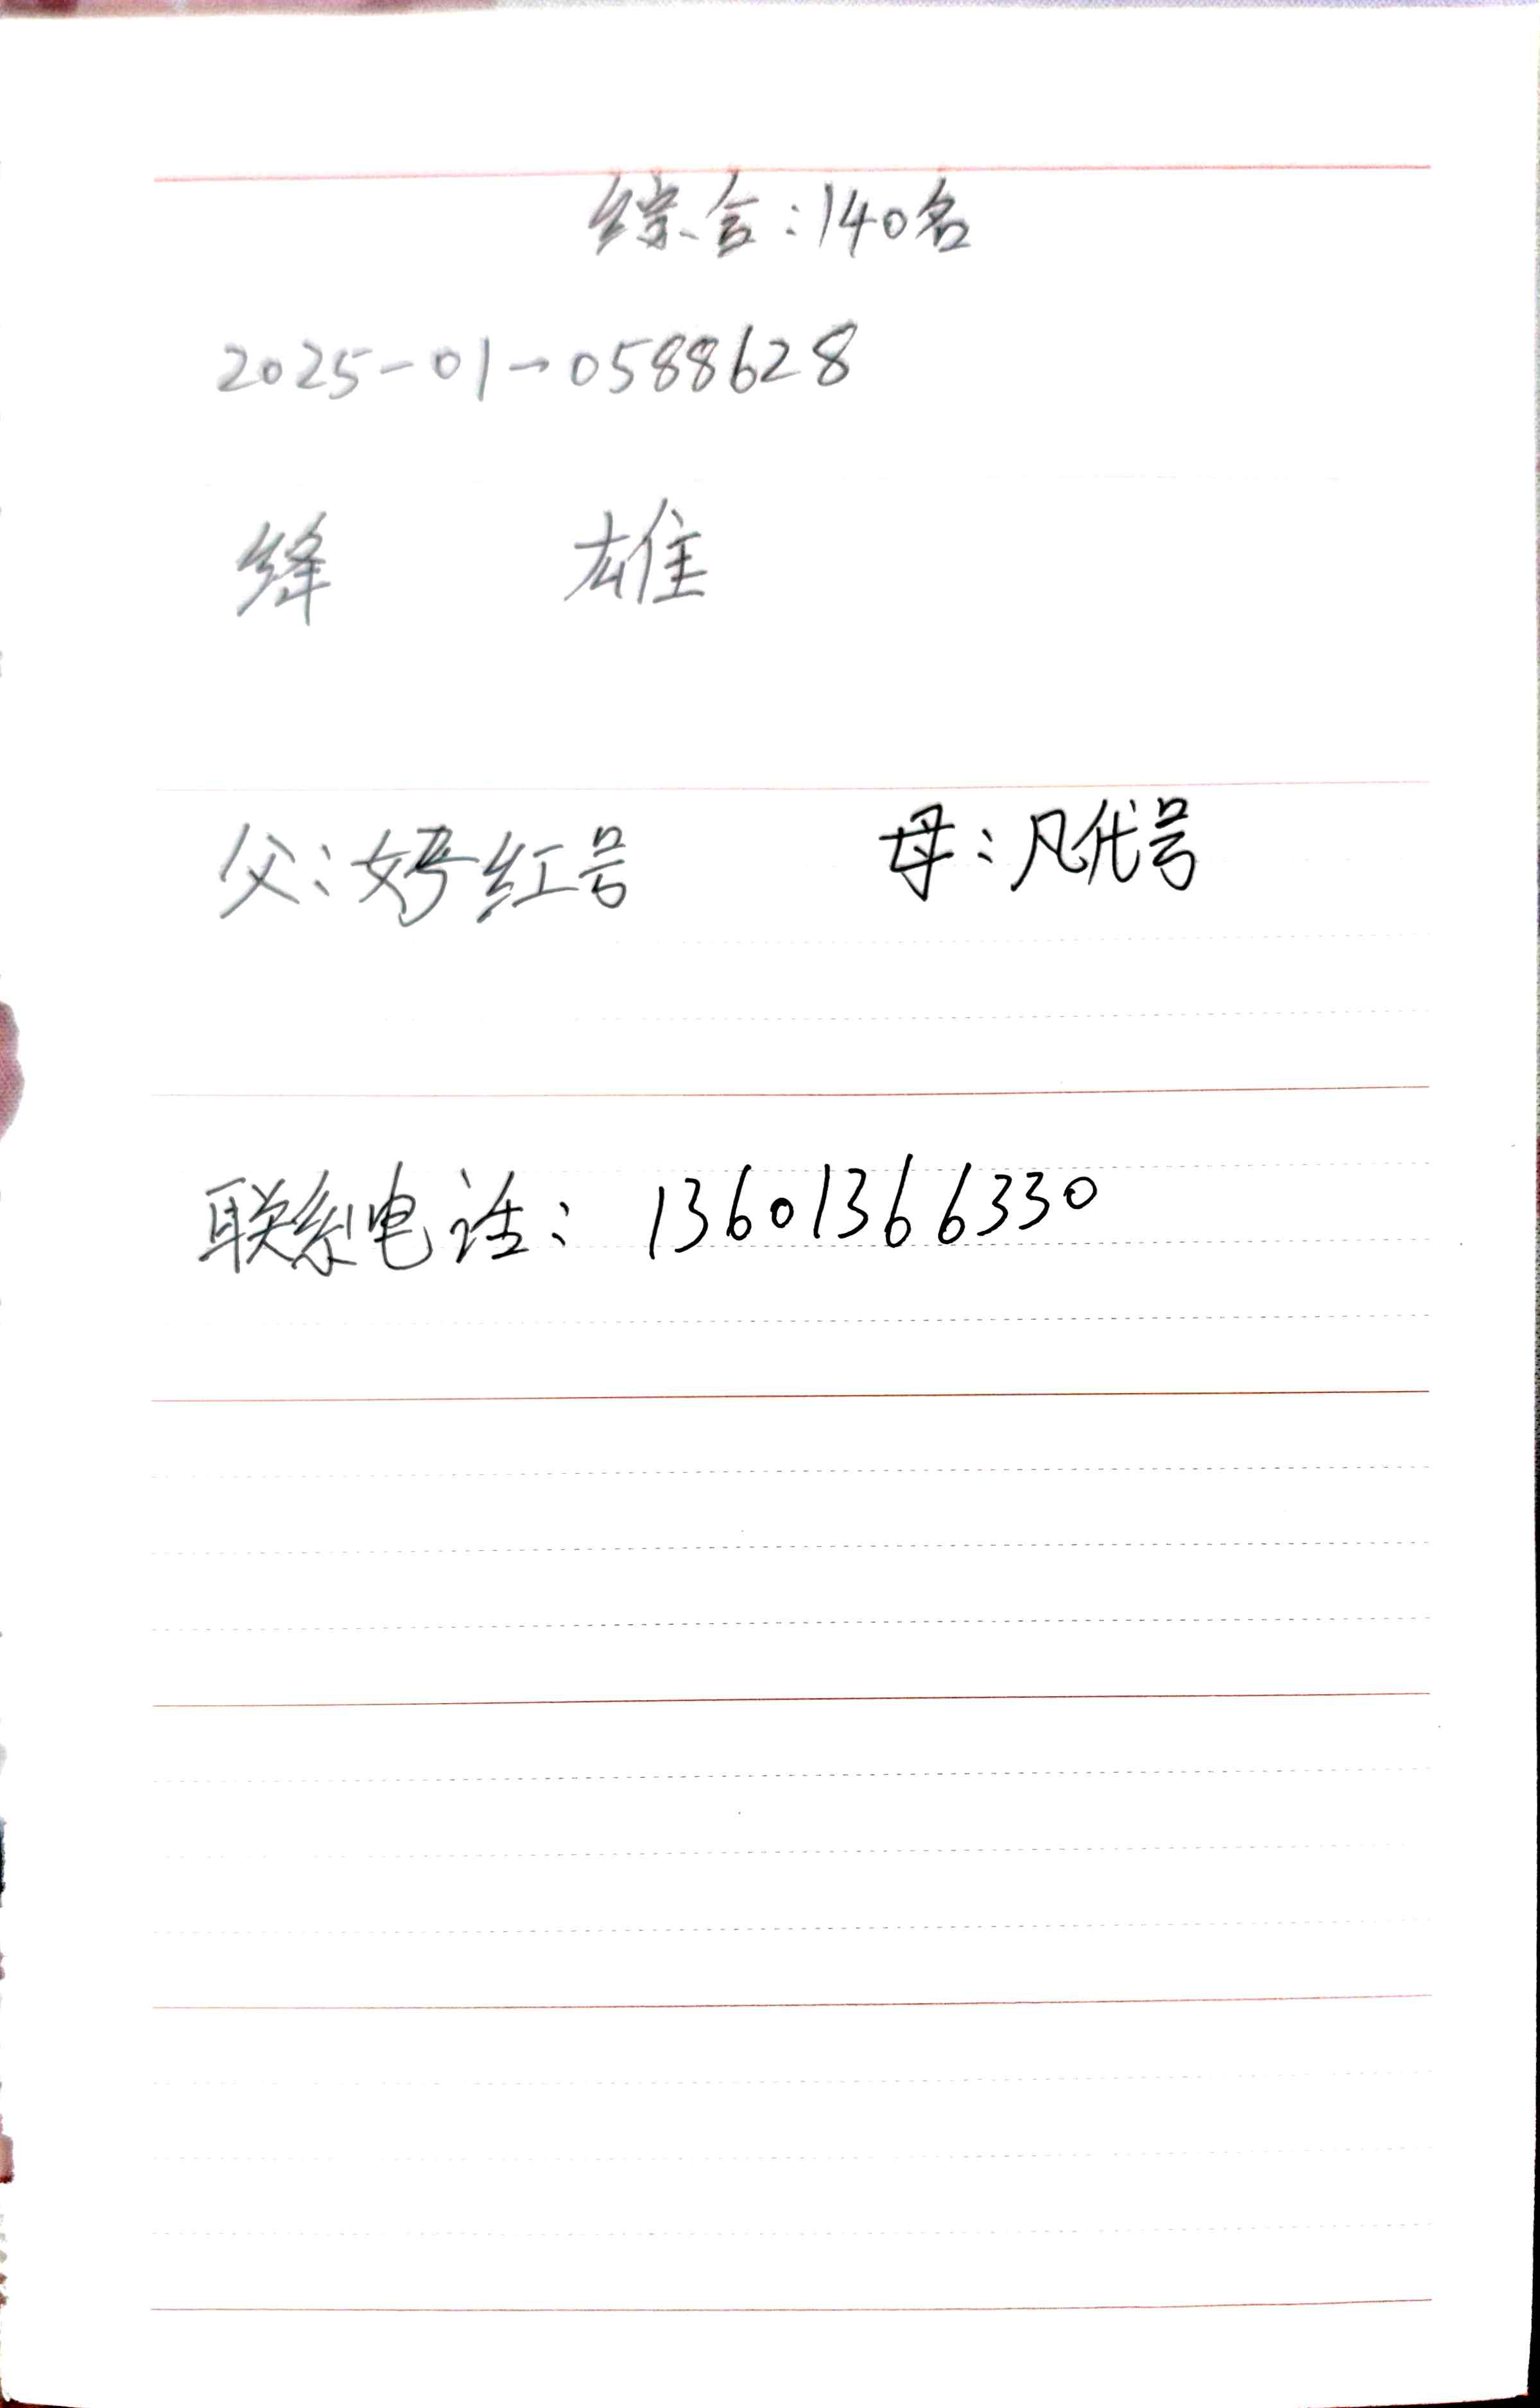 综合:140名
2025-01-0588628
绛 雄
父:娉红号 母:凡代号
联系电话: 13601366330